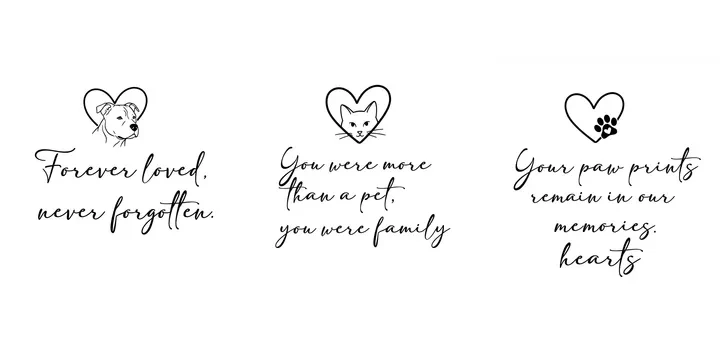 Forever loved,
never forgotten.
You were more
than a pet,
you were family
Your paw prints
remain in our
memories.
hearts